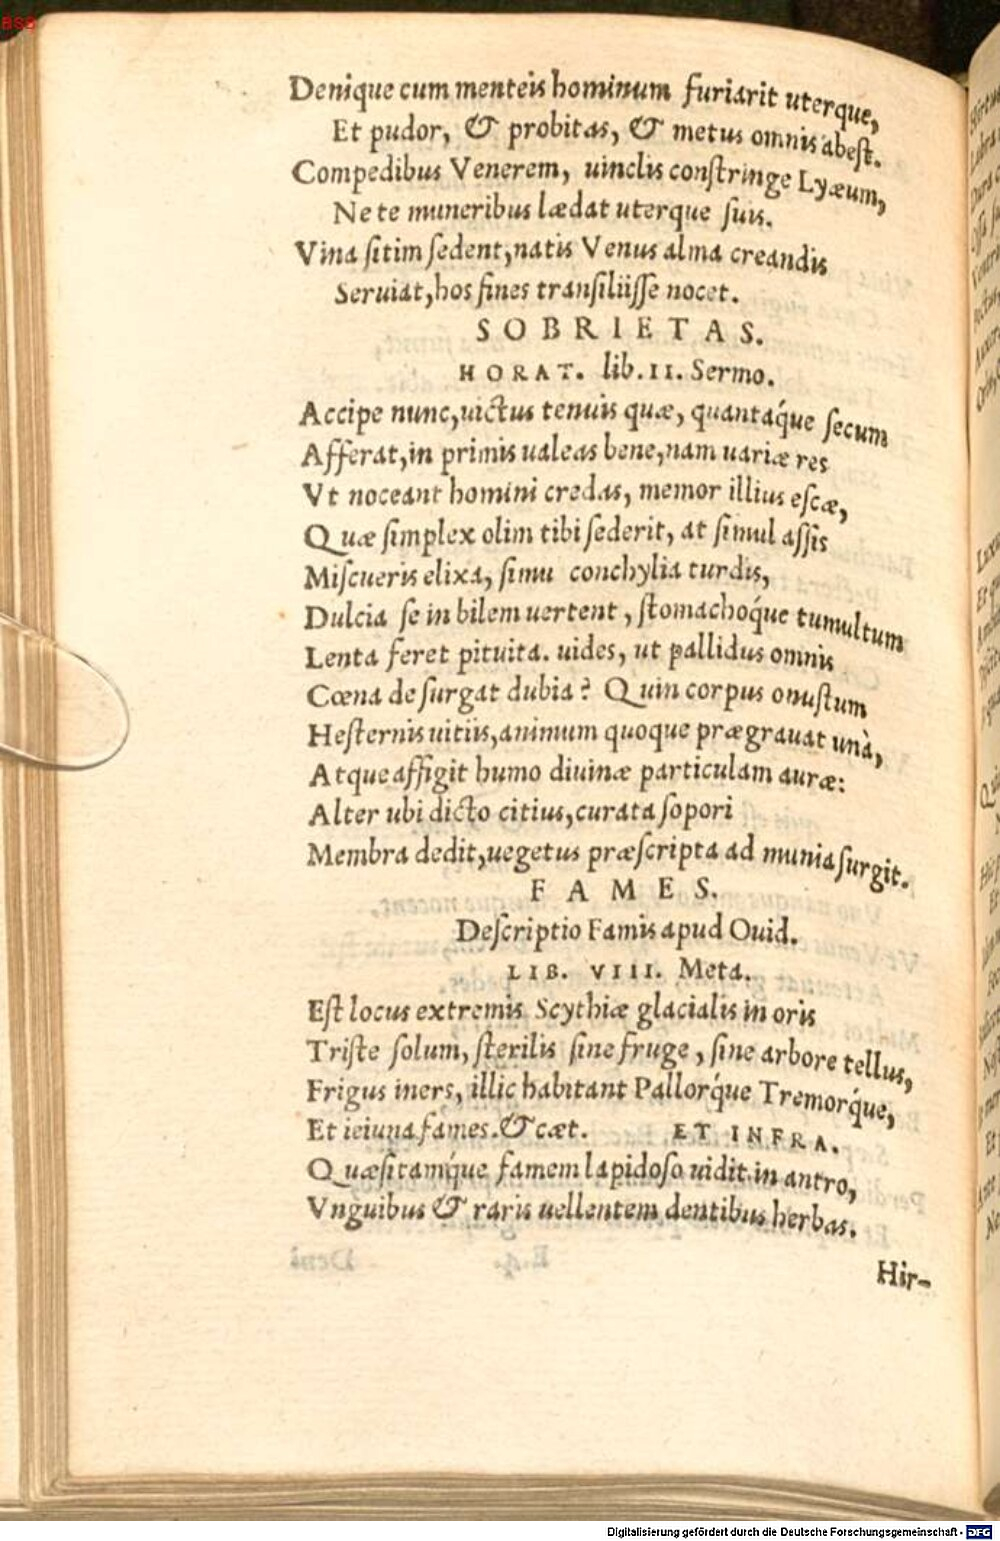 BSB
Denique cum menteis hominum furiarit uterque,
Et pudor, & probitas, & metus omnis abest.
Compedibus Venerem, uinclis constringe Lyæum,
Ne te muneribus lædat uterque suis.
Vina sitim sedent, natis Venus alma creandis
Seruiat, hos fines transiliisse nocet.
SOBRIETAS.
HORAT. lib. II. Sermo.
Accipe nunc, uictus tenuis quæ, quantáque secum
Afferat, in primis ualeas bene, nam uariæ res
Vt noceant homini credas, memor illius escæ,
Quæ simplex olim tibi sederit, at simul assis
Miscueris elixa, simu conchylia turdis,
Dulcia se in bilem uertent, stomachoque tumultum
Lenta feret pituita. uides, ut pallidus omnis
Cœna desurgat dubia? Quin corpus onustum
Hesternis uitiis, animum quoque prægrauat unà,
Atque affigit humo diuinæ particulam auræ:
Alter ubi dicto citius, curata sopori
Membra dedit, uegetus præscripta ad munia surgit.
FAMES.
Descriptio Famis apud Ouid.
LIB. VIII. Meta.
Est locus extremis Scythiæ glacialis in oris
Triste solum, sterilis sine fruge, sine arbore tellus,
Frigus iners, illic habitant Pallorque Tremorque,
Et ieiuna fames. & cæt. ET INFRA.
Quæsitamque famem lapidoso uidit in antro,
Vnguibus & raris uellentem dentibus herbas.
Hir-
Digitalisierung gefördert durch die Deutsche Forschungsgemeinschaft - DFG